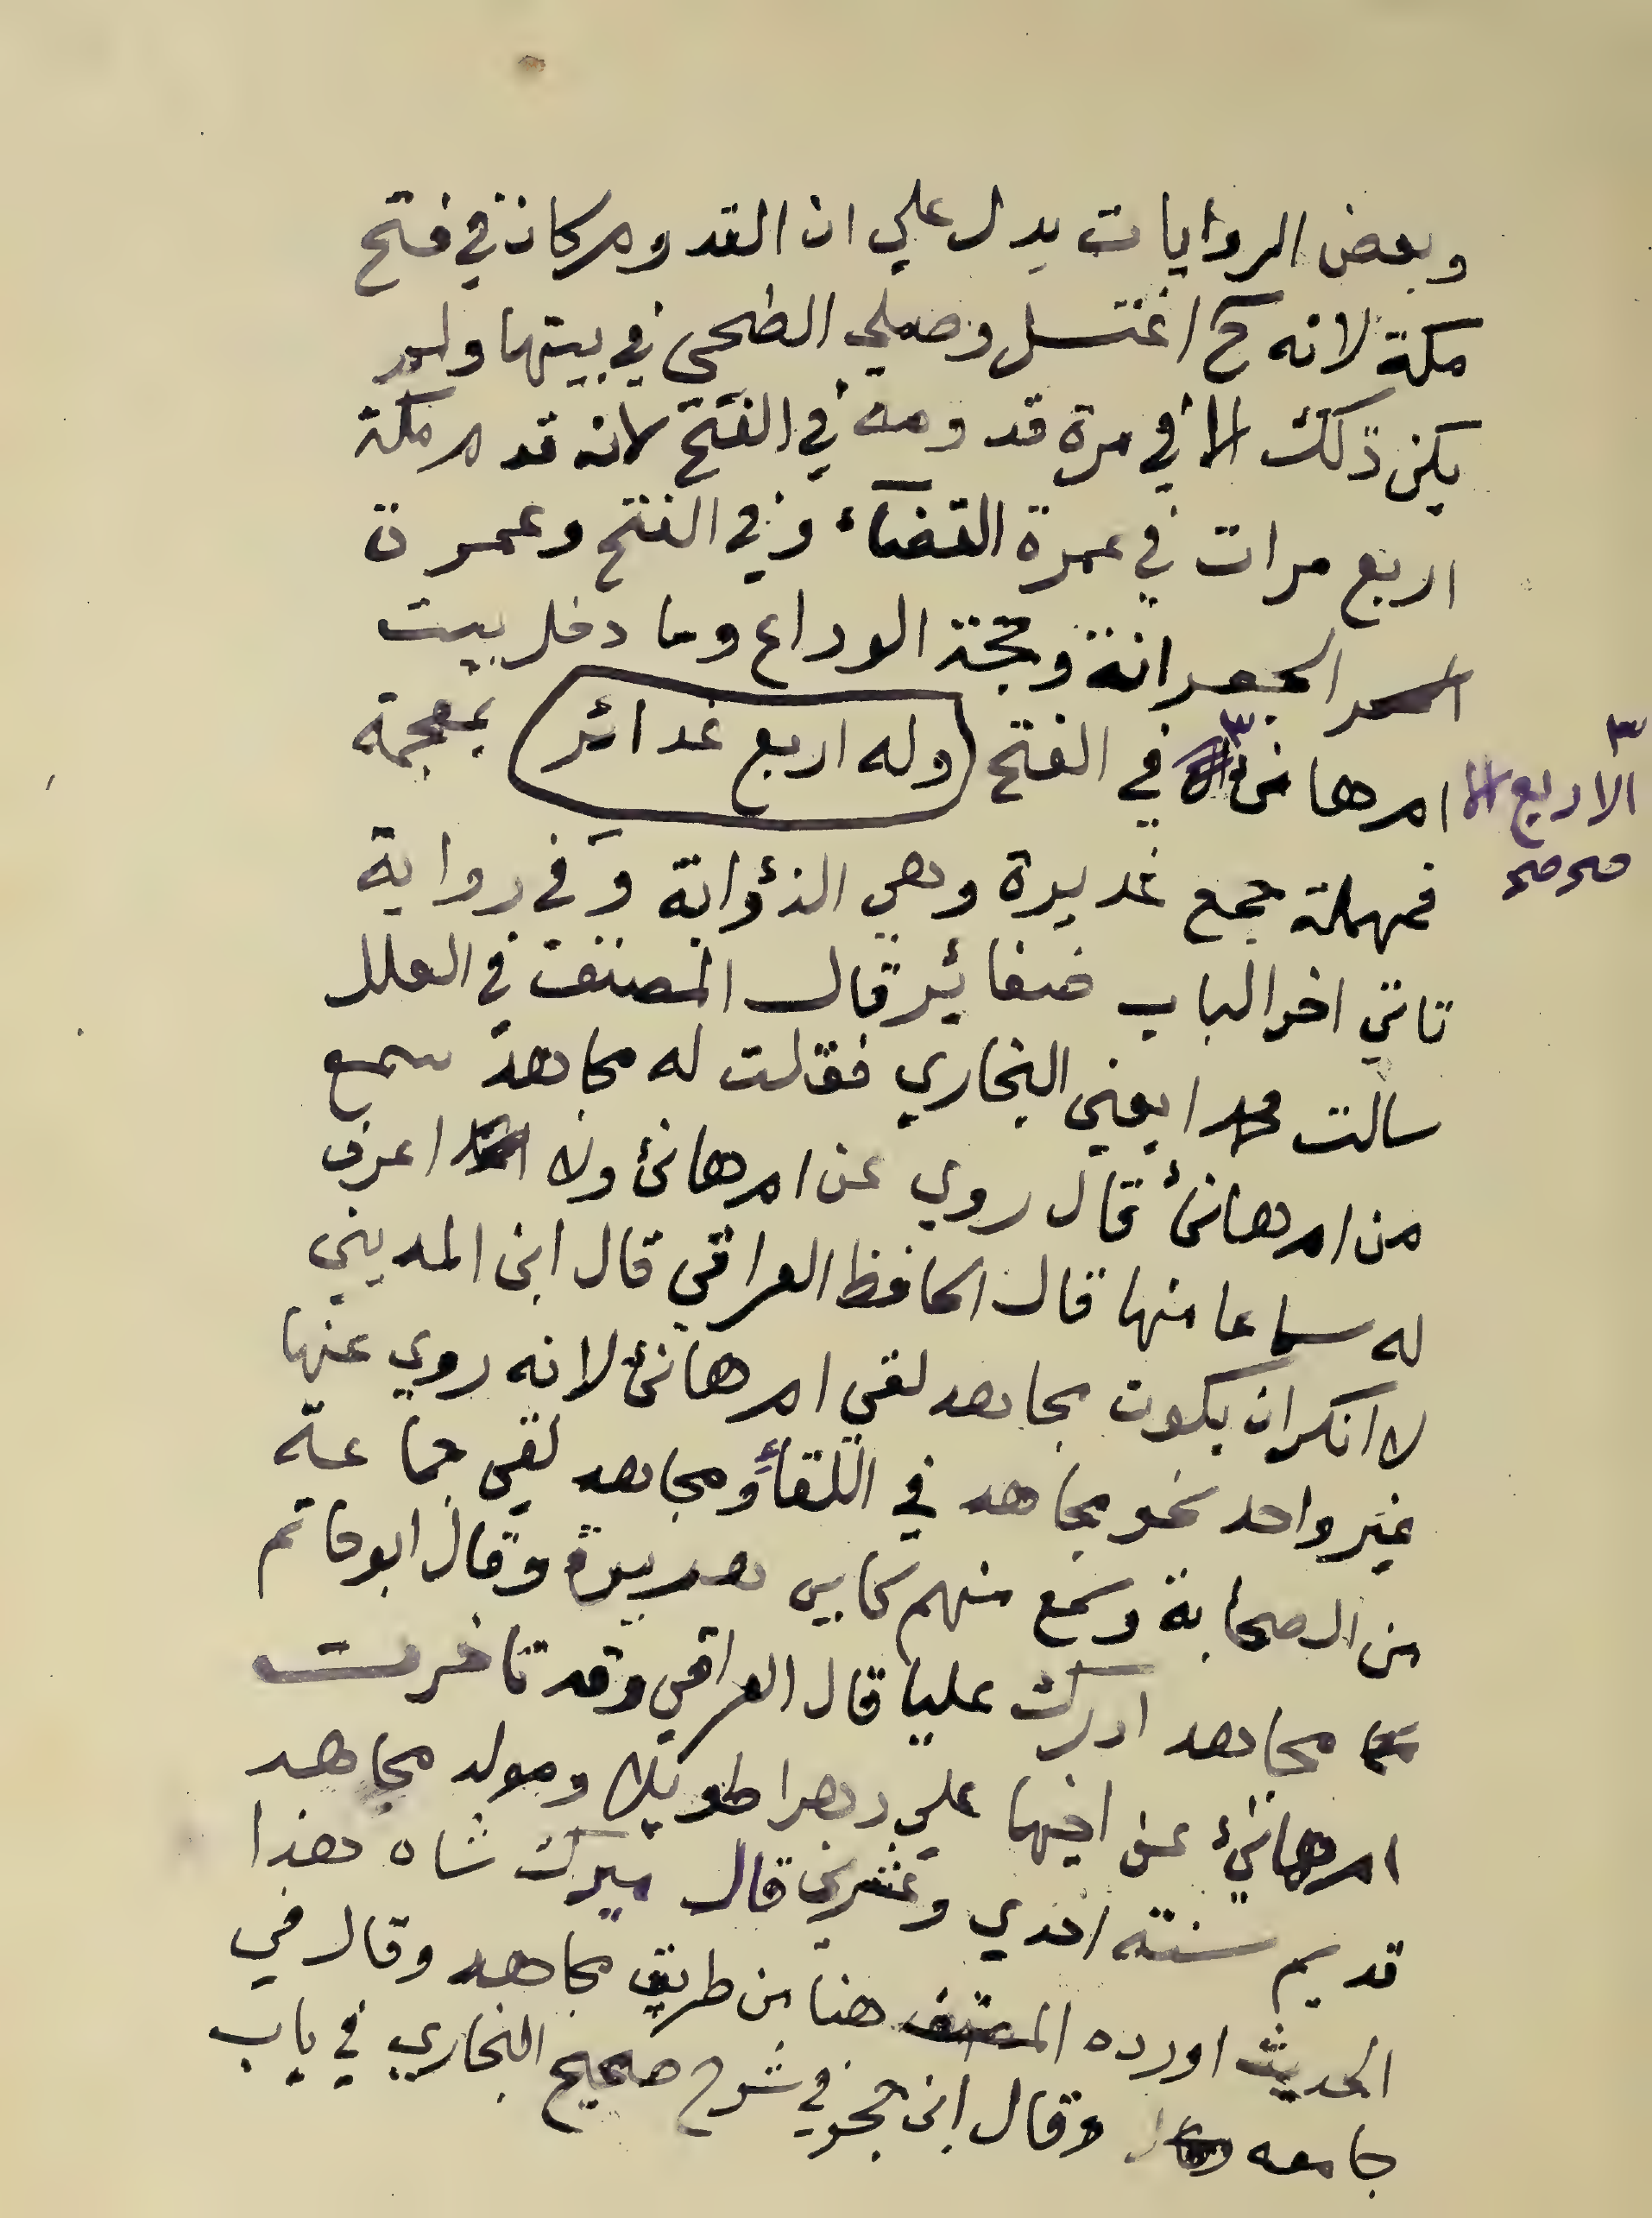 وبعض الروايات يدل علي ان القدوم كان في فتح
مكة لانه ح اغتسل وصلي الضحي في بيتها ولم
يكن ذلك الا في مرة قدومه في الفتح لانه قدم مكة
اربع مرات في عمرة القضاء وفي الفتح وعمرة
الجعرانة وحجة الوداع وما دخل بيت
ام هانئ في الفتح وله اربع غدائر بمعجمة
الاربع الا
صح صح
فمهملة جمع غديرة وهي الذؤابة وفي رواية
تاتي اخر الباب ضفائر قال المصنف في العلل
سالت محمدا يعني البخاري فقلت له مجاهد سمع
من ام هانئ قال روي عن ام هانئ ولا اعرف
له سماعا منها قال الحافظ العراقي قال ابن المديني
لا انكر ان يكون مجاهد لقي ام هانئ لانه روي عنها
غير واحد نحو مجاهد في اللقاء ومجاهد لقي جماعة
من الصحابة وسمع منهم كابي هريرة وقال ابو حاتم
مجاهد ادرك عليا قال العراقي وقد تاخرت
ام هانئ عن اخيها علي دهرا طويلا ومولد مجاهد
قديم سنة احدي وعشرين قال ميرك شاه هذا
الحديث اورده المصنف هنا من طريق مجاهد وقال في
جامعه وقال ابن حجر في شرح صحيح البخاري في باب